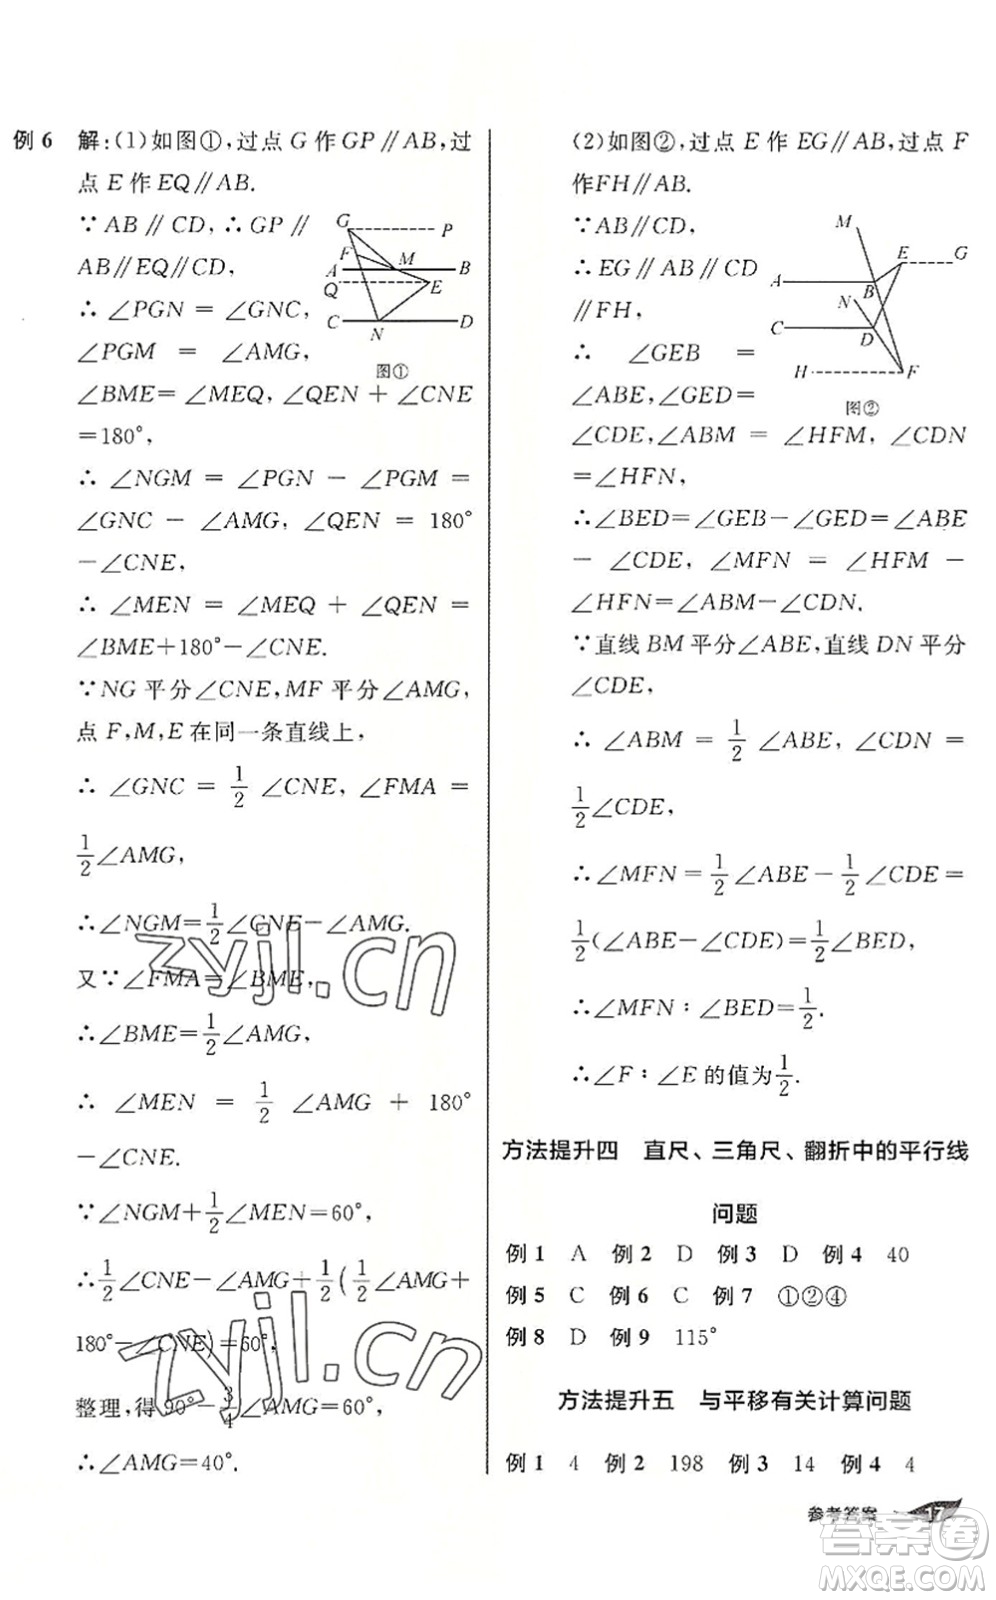 例 6 解:(1)如图①,过点 G 作 GP∥AB,过
点 E 作 EQ∥AB.
∵AB∥CD,∴GP∥
AB∥EQ∥CD,
∴∠PGN = ∠GNC,
∠PGM = ∠AMG,
∠BME = ∠MEQ, ∠QEN + ∠CNE
=180°,
∴ ∠NGM = ∠PGN - ∠PGM =
∠GNC - ∠AMG, ∠QEN = 180°
-∠CNE,
∴ ∠MEN = ∠MEQ + ∠QEN =
∠BME+180°-∠CNE.
∵NG 平分∠CNE,MF 平分∠AMG,
点 F,M,E 在同一条直线上,
∴ ∠GNC = 1/2 ∠CNE, ∠FMA =
1/2∠AMG,
∴∠NGM=1/2∠CNE-∠AMG.
又∵∠FMA=∠BME,
∴∠BME=1/2∠AMG,
∴ ∠MEN = 1/2 ∠AMG + 180° -
∠CNE.
∵∠NGM+1/2∠MEN=60°,
∴1/2∠CNE-∠AMG+1/2(1/2∠AMG+
180°-∠CNE)=60°,
整理,得 90°-3/4∠AMG=60°,
∴∠AMG=40°.
G P
F
A M B
Q E
C N D
图①
(2)如图②,过点 E 作 EG∥AB,过点 F
作FH∥AB.
∵AB∥CD,
∴EG∥AB∥CD
∥FH,
∴ ∠GEB =
∠ABE,∠GED=
∠CDE,∠ABM = ∠HFM, ∠CDN
=∠HFN,
∴∠BED=∠GEB-∠GED=∠ABE
- ∠CDE, ∠MFN = ∠HFM -
∠HFN=∠ABM-∠CDN.
∵直线 BM 平分∠ABE,直线 DN 平分
∠CDE,
∴ ∠ABM = 1/2 ∠ABE, ∠CDN =
1/2∠CDE,
∴∠MFN = 1/2 ∠ABE - 1/2 ∠CDE =
1/2(∠ABE-∠CDE)=1/2∠BED,
∴∠MFN∶∠BED=1/2.
∴∠F∶∠E 的值为1/2.
M
E G
A B
N
C D
H F
图②
方法提升四 直尺、三角尺、翻折中的平行线
问题
例 1 A 例 2 D 例 3 D 例 4 40
例 5 C 例 6 C 例 7 ①②④
例 8 D 例 9 115°
方法提升五 与平移有关计算问题
例 1 4 例 2 198 例 3 14 例 4 4
参考答案 17
zyjl.cn
zyjl.cn
答案圈
MXQE.COM